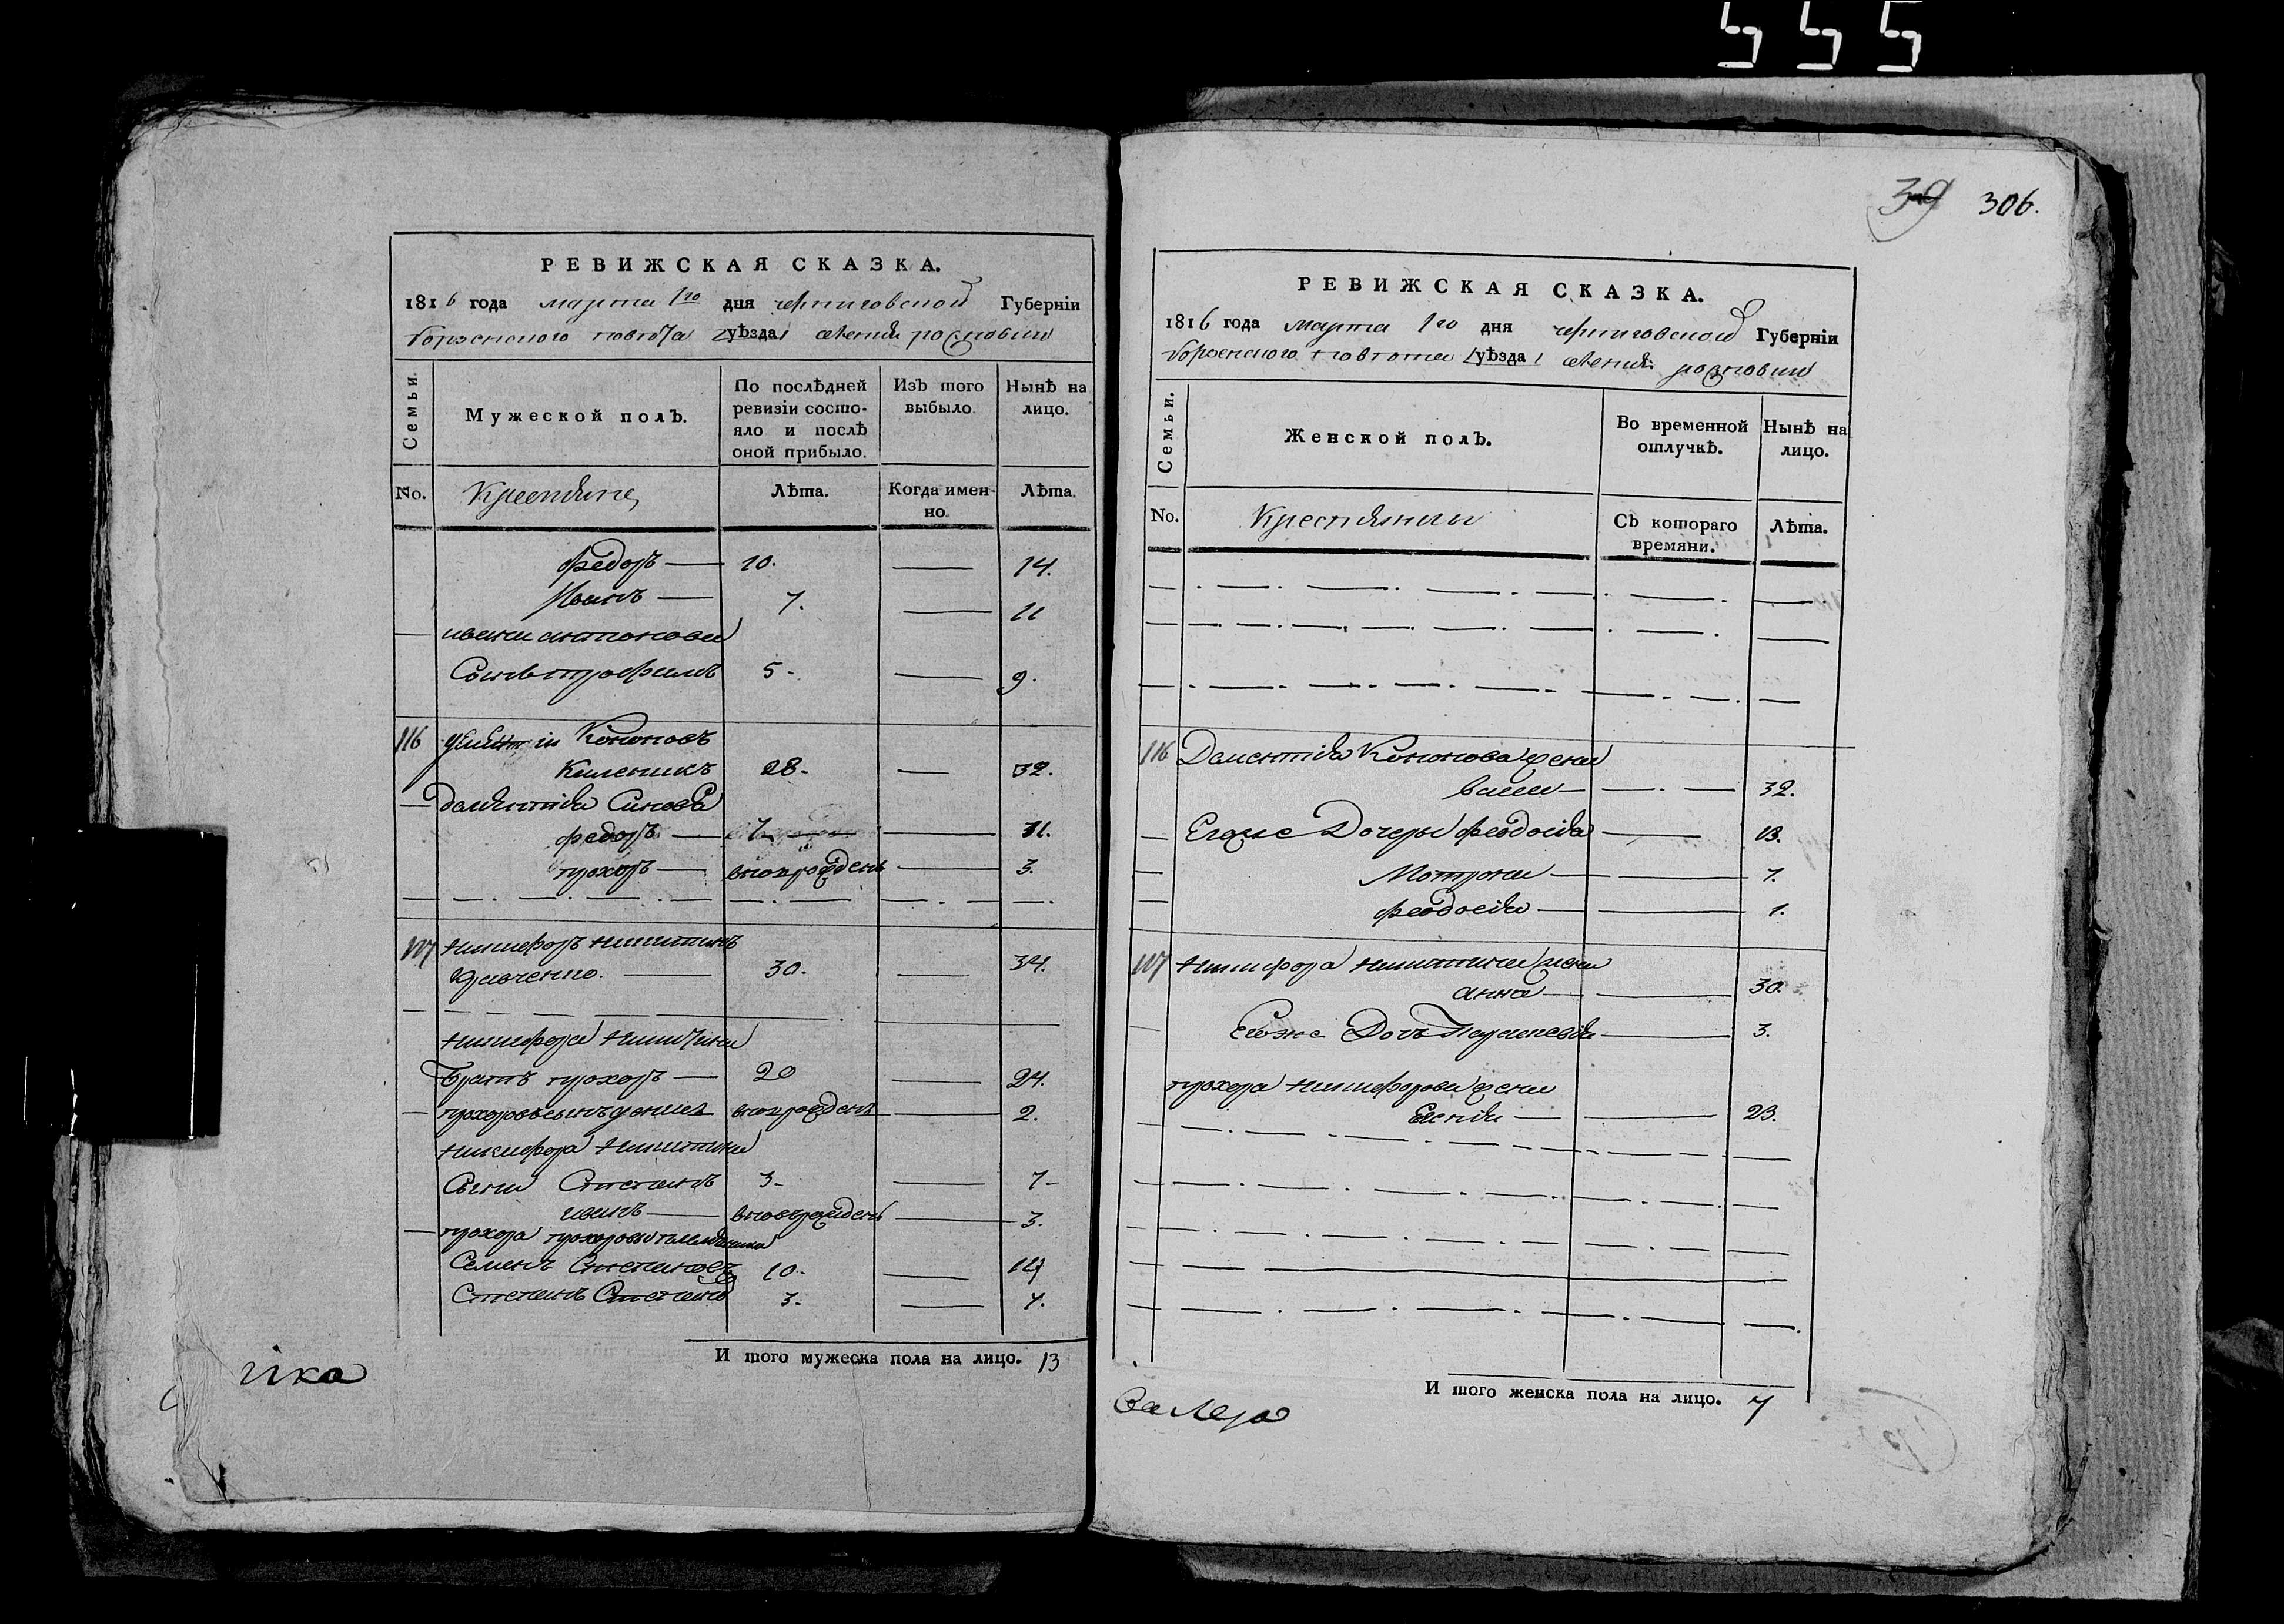 555
РЕВИЖСКАЯ СКАЗКА.
1816 года марта 1го дня черниговской Губерніи
борзенского повѣта /уѣзда/ селенія
Семьи.
Мужеской полъ.
По послѣдней ревизіи состо-
яло и послѣ
оной прибыло.
Изъ того
выбыло.
Нынѣ на
лицо.
No.
Крестяне,
Лѣта.
Когда имен-
но.
Лѣта.
федоръ — 10. — 14.
Иванъ — 7. — 11
— ивана антонова
Сынъ трофимъ 5 - — 9.
116 Кононовъ
28. — 32.
— Дементія Синова
федоръ — 7 — 11.
прохоръ — вновърожденъ — 3.
117 никифоръ никитинъ
30. — 34.
никифора никитина
Братъ прохоръ — 20 — 24.
— прохоровъ сынъ денисъ вновърожденъ — 2.
никифора никитина
Сыни Степанъ 3 - — 7 -
иванъ — вновърожденъ — 3.
— прохора племяники
Семенъ Степановъ 10. — 14
Степанъ Степанов 3. — 7.
И того мужеска пола на лицо. 13
ика
39 306.
РЕВИЖСКАЯ СКАЗКА.
1816 года марта 1го дня черниговской Губерніи
борзенского повѣта /уѣзда/ селенія
Семьи.
Женской полъ.
Во временной
отлучкѣ.
Нынѣ на
лицо.
No.
Крестянки
Съ котораго
времяни.
Лѣта.
116 Дементія Кононова жена
— 32.
— Егоже Дочеры феодосія — 13.
— Мотрона — 7.
— феодосія — 1.
117 никифора никитина жена
анна — 30.
— Егоже Дочъ Параскевія — 3.
прохора никифорова жена
— 23.
И того женска пола на лицо. 7
Валера